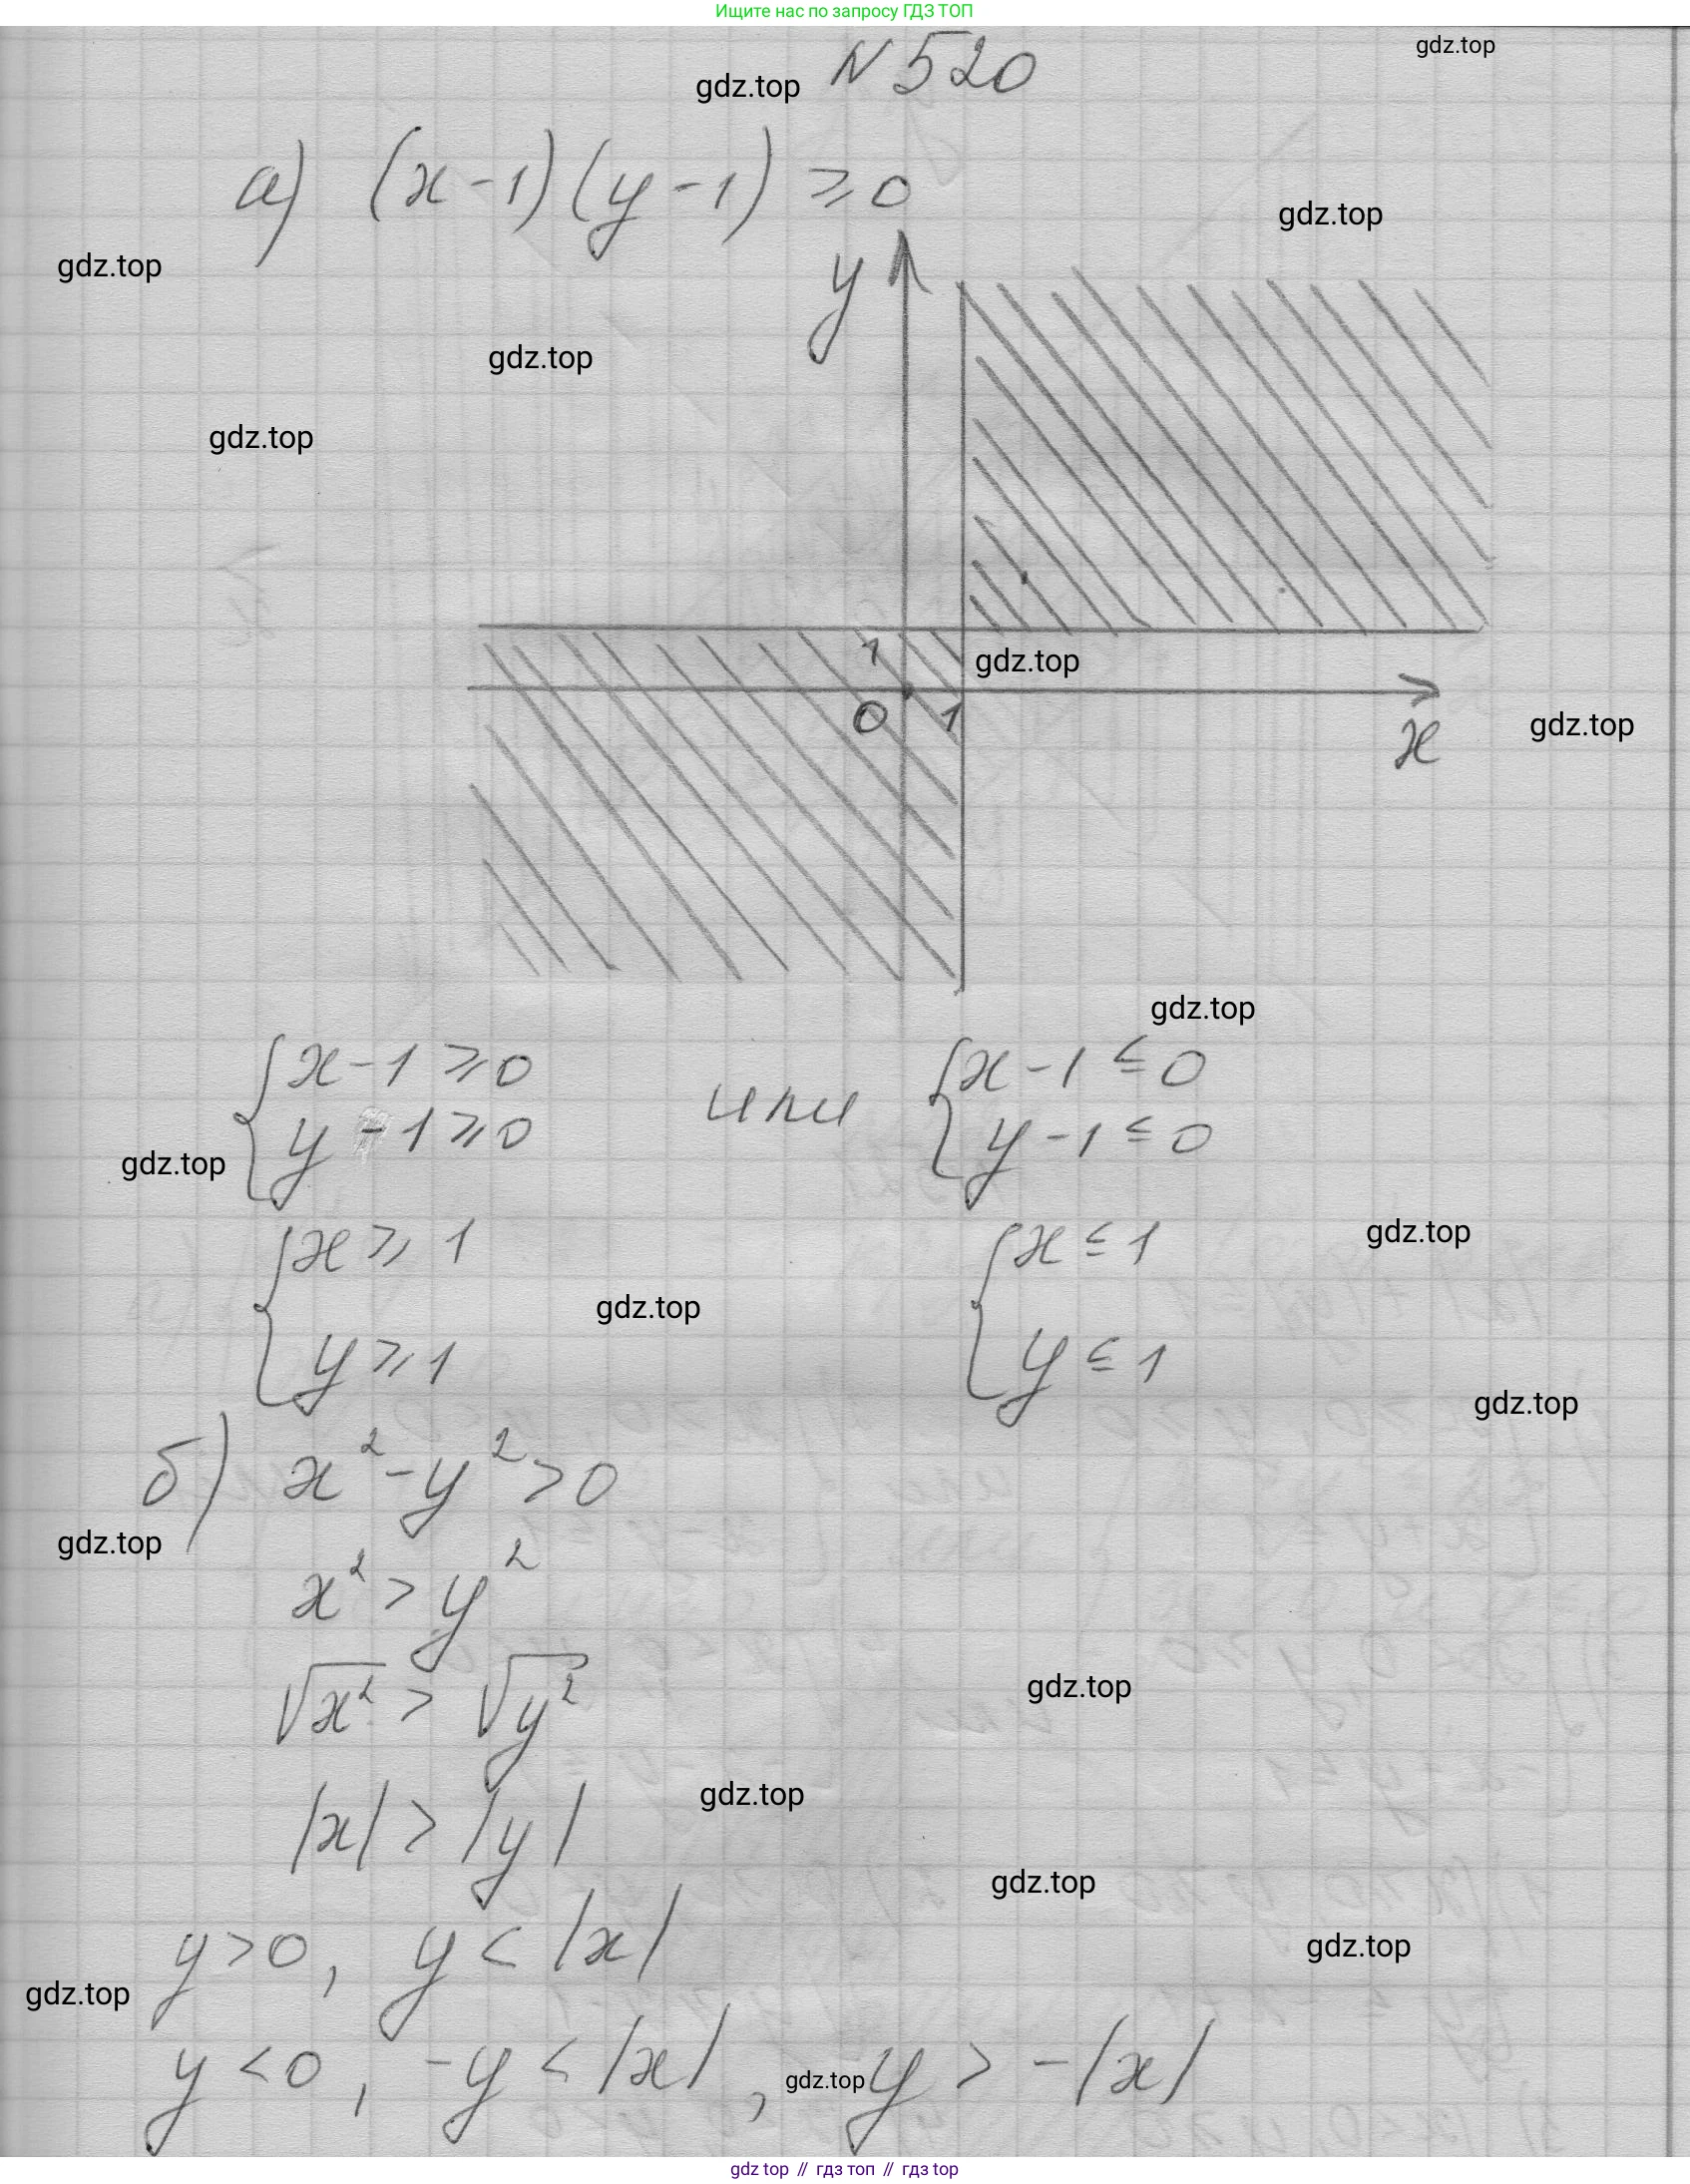 Ищите нас по запросу ГДЗ ТОП
gdz.top
N 520
gdz.top
а) (x-1)(y-1) ⩾ 0
gdz.top
gdz.top
y
gdz.top
gdz.top
1
gdz.top
0 1
gdz.top
x
gdz.top
{x-1 ⩾ 0 или {x-1 ≤ 0
y-1 ⩾ 0 y-1 ≤ 0
gdz.top
{x ⩾ 1 {x ≤ 1
gdz.top
gdz.top
y ⩾ 1 y ≤ 1
gdz.top
б) x² - y² > 0
gdz.top
x² > y²
√x² > √y²
gdz.top
gdz.top
|x| > |y|
gdz.top
y > 0, y < |x|
gdz.top
gdz.top
y < 0, -y < |x|, y > -|x|
gdz.top
gdz top // гдз топ // гдз top